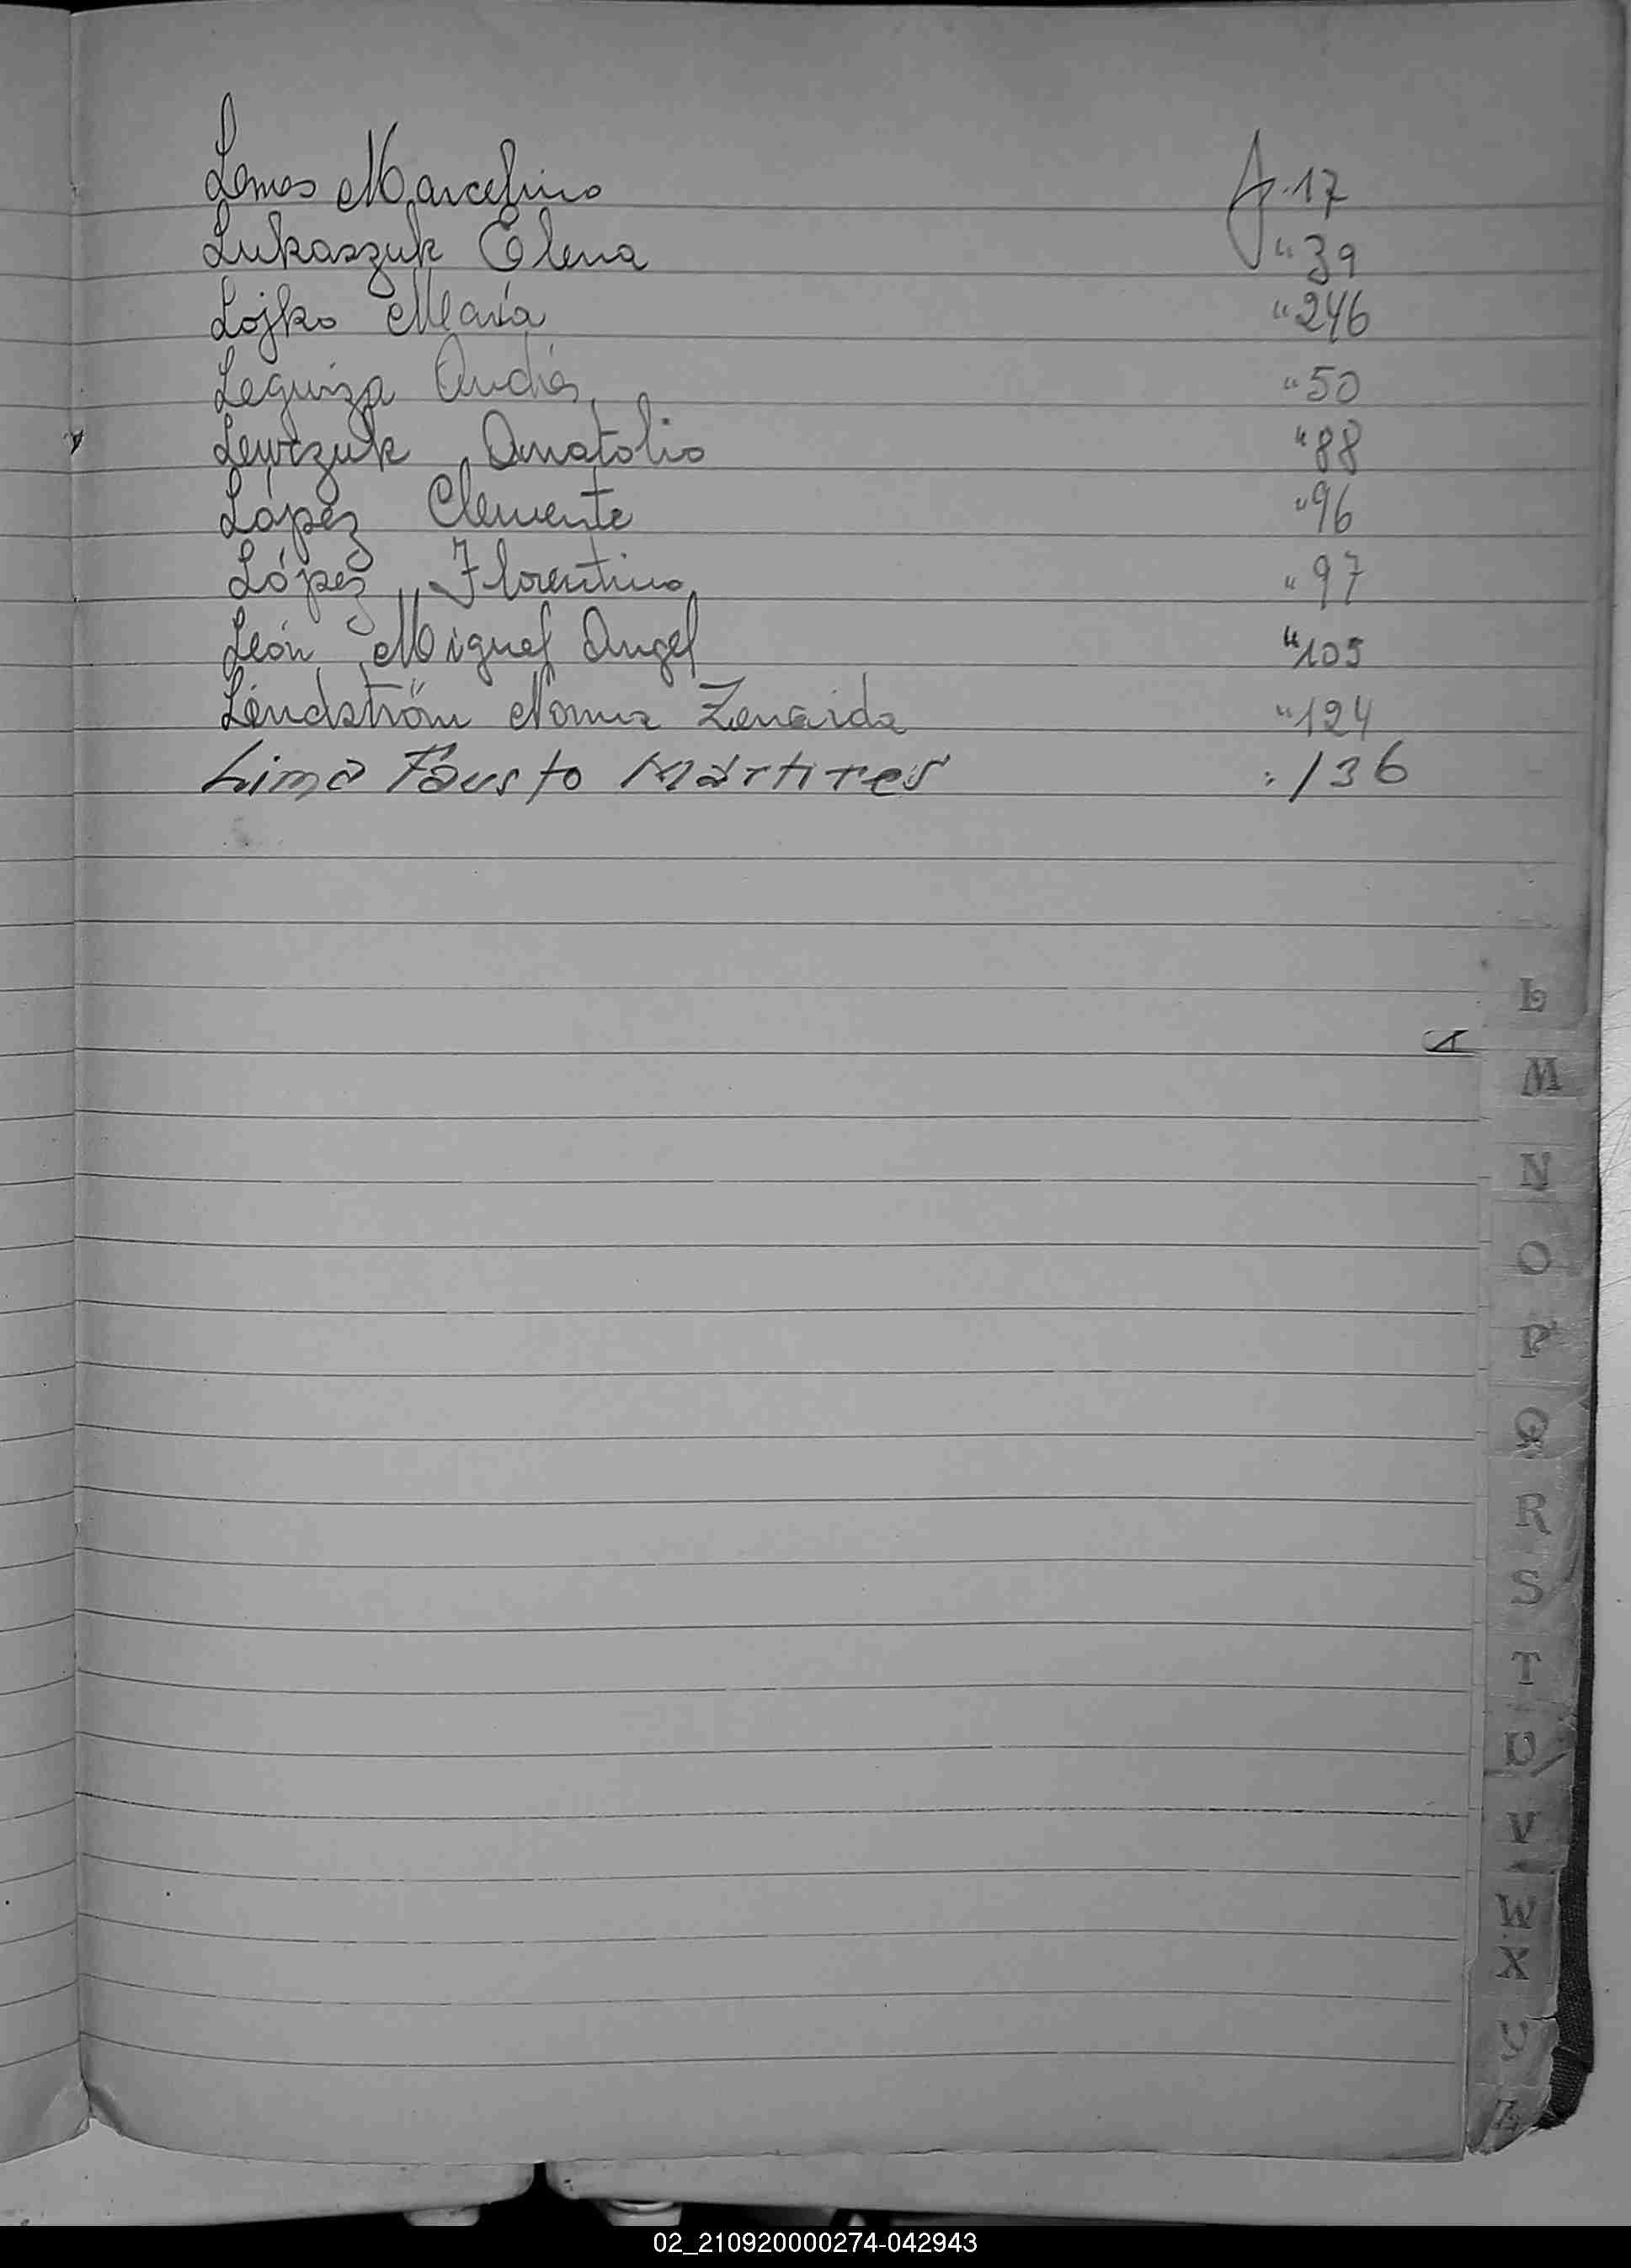 Lemos Marcelino f. 17
Lukaszuk Elena " 39
Lojko María " 246
Leguiza Andrés " 50
Lewczuk Anatolio " 88
López Clemente " 96
López Florentino " 97
León Miguel Angel " 105
Lindström Norma Zenaida " 124
Lima Fausto Mártires : 136
L
M
N
O
P
Q
R
S
T
U
V
W
X
Y
Z
02_210920000274-042943